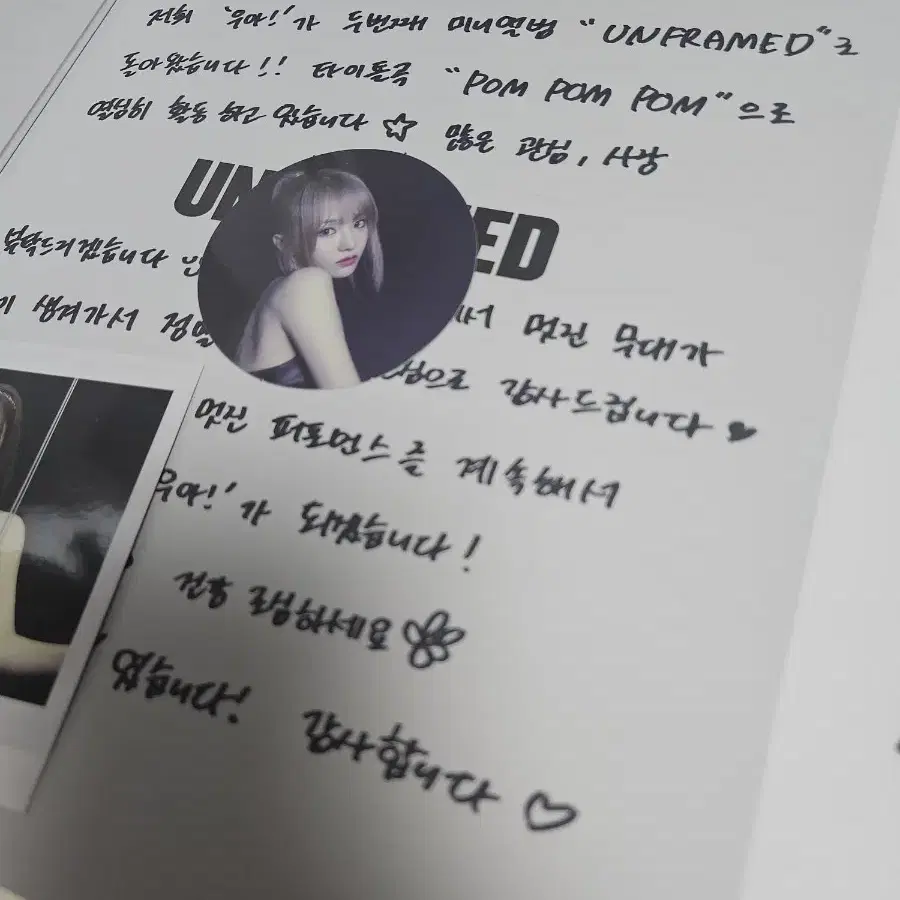 저희 '우아!'가 두번째 미니앨범 "UNFRAMED"로
돌아왔습니다!! 타이틀곡 "POM POM POM"으로
열심히 활동 하고 있습니다 ☆ 많은 관심, 사랑
UN ED
부탁드리겠습니다
서 멋진 무대가
생겨가서 정말
심으로 감사드립니다 ♥
멋진 퍼포먼스를 계속해서
우아!'가 되겠습니다!
건강 조심하세요
였습니다! 감사합니다 ♡